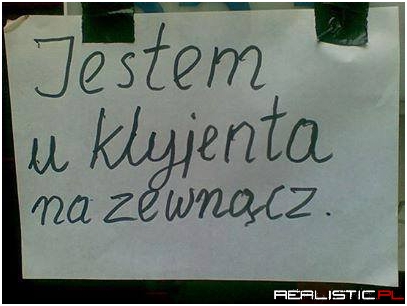 Jestem
u klyjenta
na zewnącz.
REALISTIC.PL